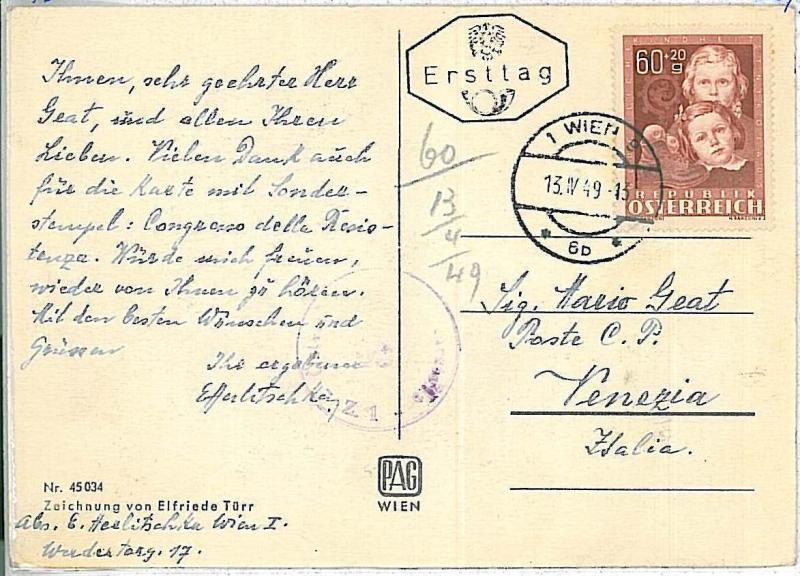 Ihnen, sehr geehrter Herr
Geat, und allen Ihren
Lieben. Vielen Dank auch
für die Karte mit Sonder-
stempel: Congresso della Resis-
tenza. Würde mich freuen,
wieder von Ihnen zu hören.
Mit den besten Wünschen und
Grüssen
Ihr ergebener
EHerlitschka
Nr. 45034
Zeichnung von Elfriede Türr
Abs. E. Herlitschka Wien I.
Werdertorg. 17.
PAG
WIEN
Ersttag
60
13
4
49
60+20
g
REPUBLIK
ÖSTERREICH
1 WIEN
13.IV.49-13
* 6b *
Sig. Mario Geat
Poste C. P.
Venezia
Italia.